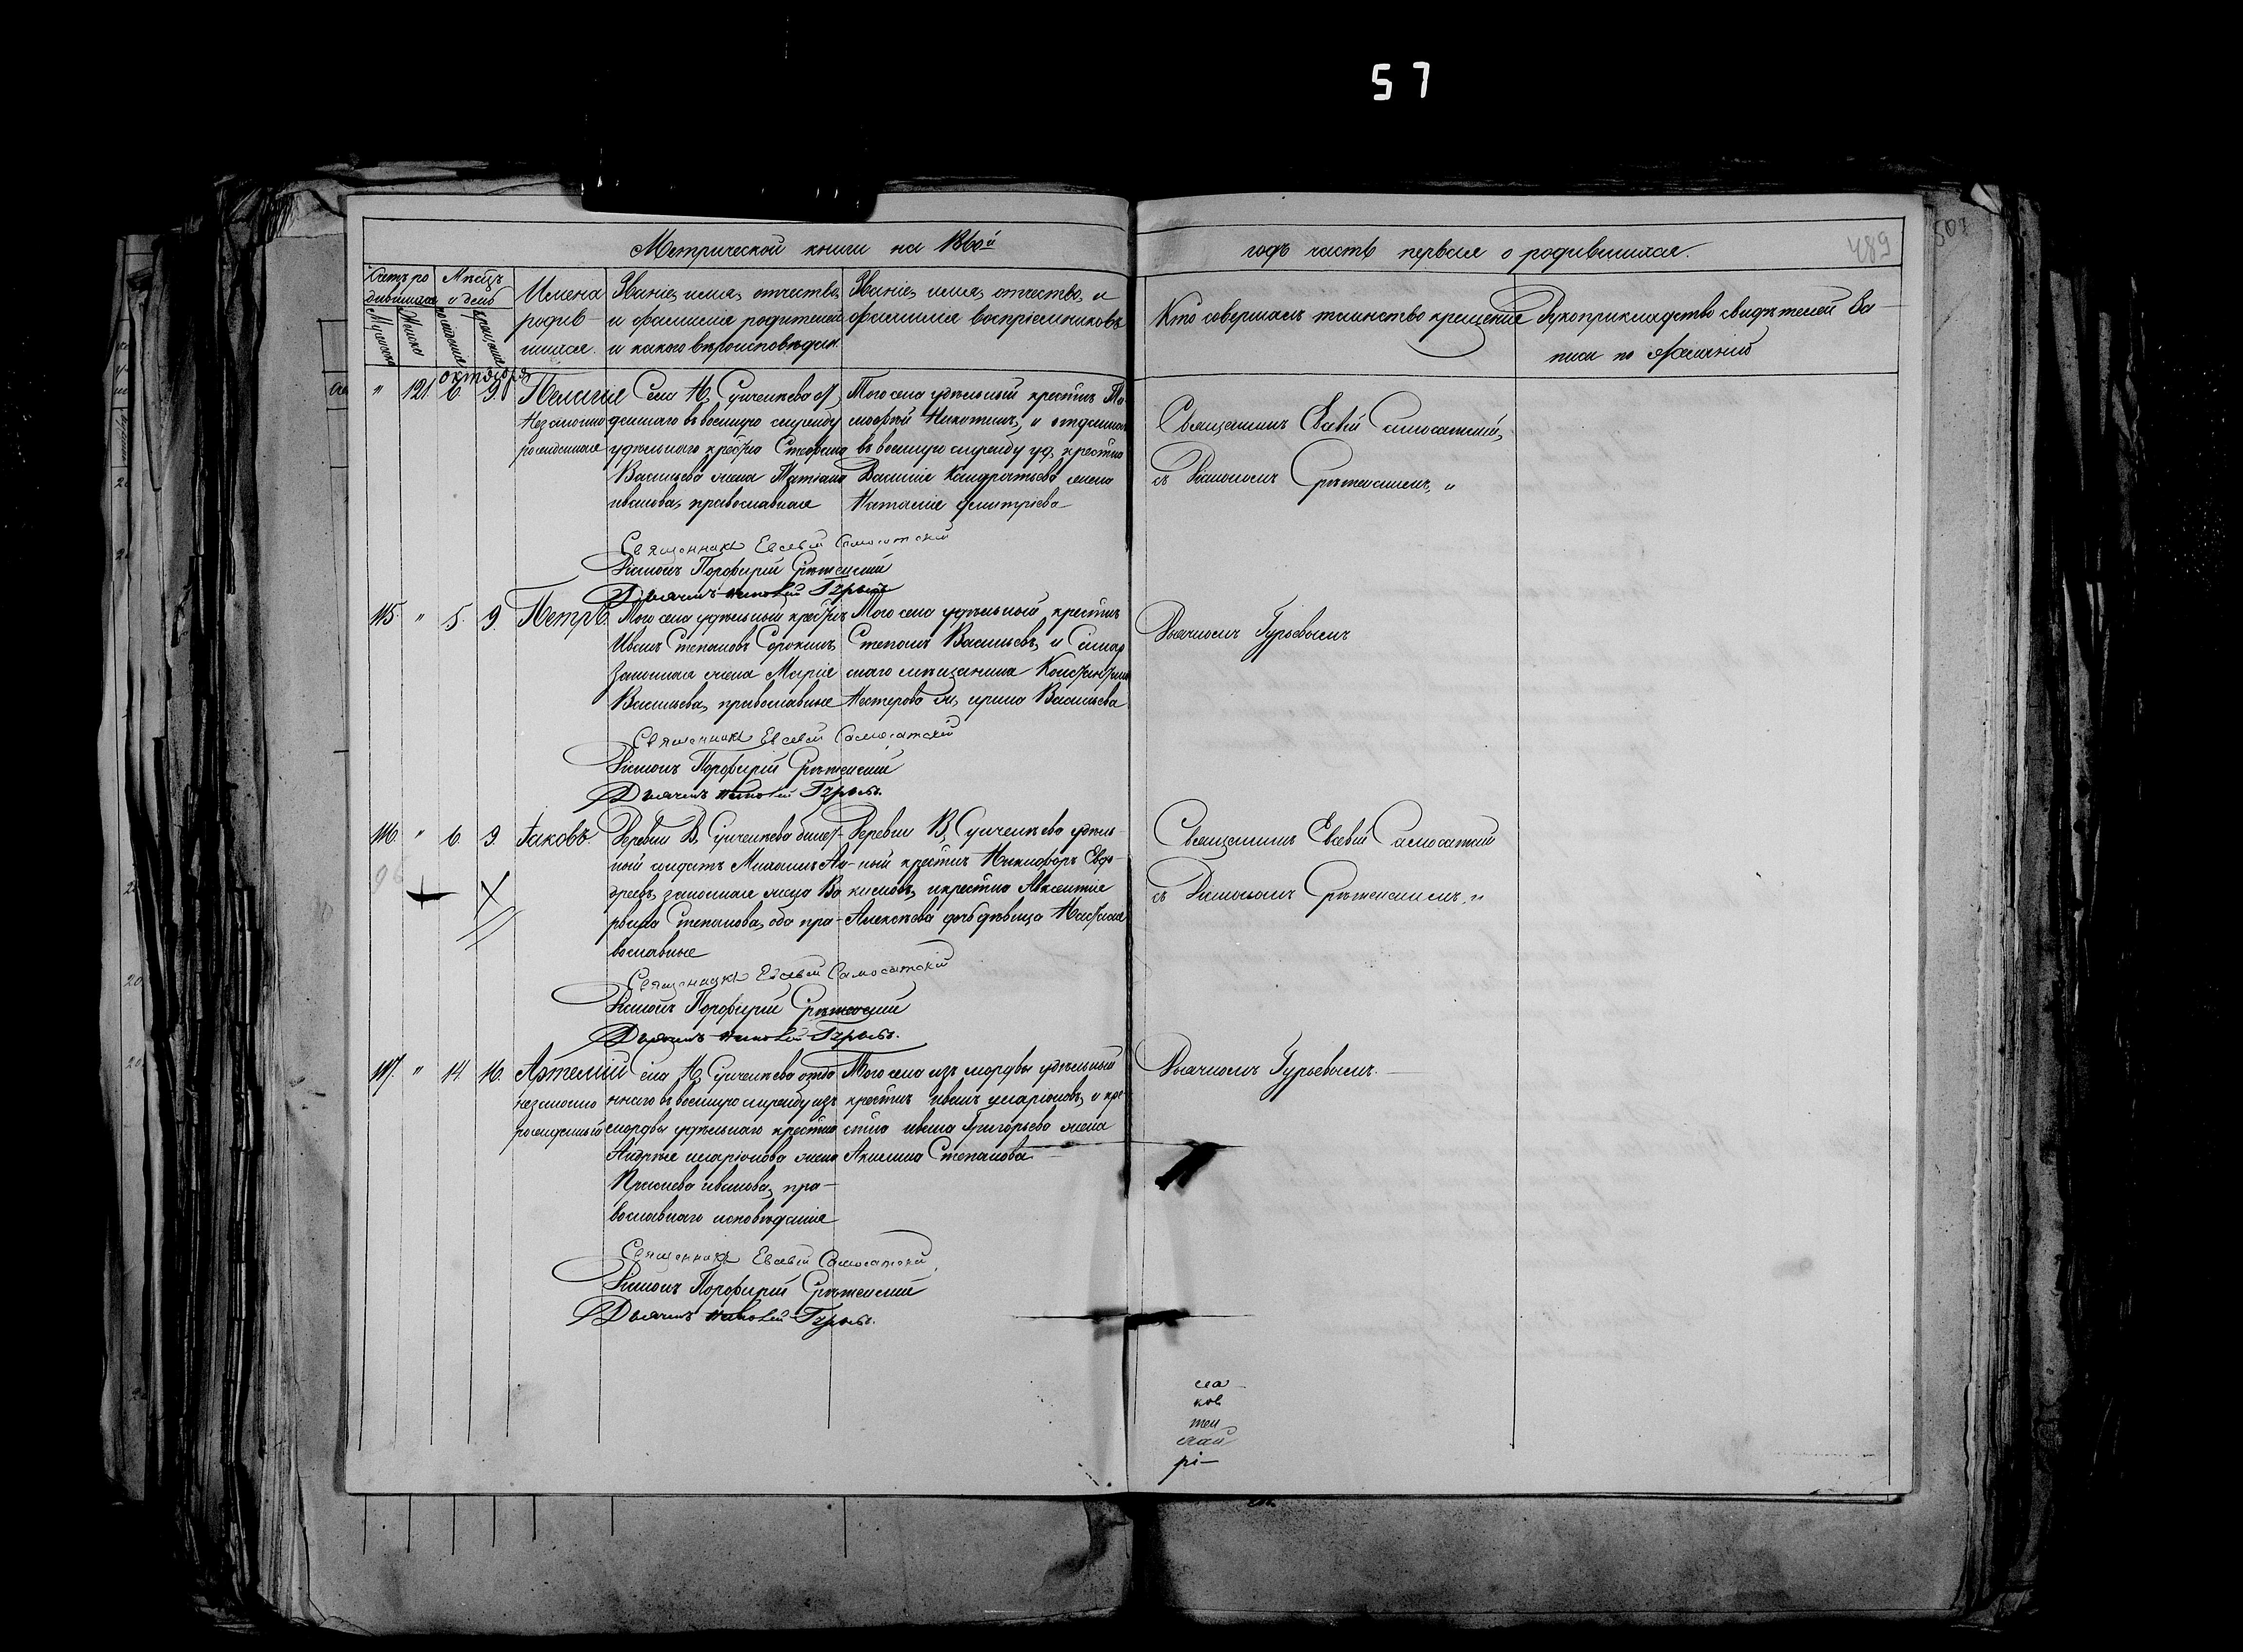 57
Метрической книги на 1860й
годъ часть первая о родившихся.
489
501
Счетъ ро
дившихся
Мужеска
Женска
Мѣсяцъ
и день
рожденія
крещенія
Имена
родив-
шихся.
Званіе, имя, отчество,
и фамилія родителей
и какого вѣроисповѣдан.
Званіе, имя, отчество, и
фамилія воспріемниковъ
Кто совершалъ таинство крещенія
Рукоприкладство свидѣтелей за-
писи по желанію
октября
" 121. 6. 9. Пелагія
Незаконно
рожденная
Села Н. Сунчелеева от
даннаго въ военную службу
удѣльнаго крестья Стефана
Васильева жена Татіана
иванова, православная
Того села удѣльный крестнъ Ти
мофѣй Никитинъ, и отданнаго
въ военную службу уд. крестна
Василія Кандратьева жена
Наталія Димитріева
Священникъ Евсевій Самосатскій,
съ Діакономъ Срѣтенскимъ, "
Священникъ Евсевій Самосатскій
Діаконъ Порфирій Срѣтенскій
Дьячекъ Николай Гурьевъ
115. " 5. 9. Петръ
Того села удѣльный крестнъ
Иванъ Степановъ Сорокинъ,
законная жена Марія
Васильева, православные
Того села удѣльный крестнъ
Степанъ Васильевъ, и Самар
скаго мѣщанина Константина
Нестерова ж, ирина Васильева
Дьячкомъ Гурьевымъ
Священникъ Евсевій Самосатскій
Діаконъ Порфирій Срѣтенскій
Дьячекъ Николай Гурьевъ.
116. " 6. 9. Іаковъ.
Деревни В. Сунчелеева билет-
ный солдатъ Михаилъ Ан-
дреевъ, законная жена Ва
рвара Степанова, оба пра-
вославные
Деревни В. Сунчелеева удѣль-
ный крестнъ Никифоръ Евдо-
кимовъ, и крестна Авксентія
Алексѣева дочь дѣвица Настасія
Священникъ Евсевій Самосатскій
съ Діакономъ Срѣтенскимъ, "
Священникъ Евсевій Самосатскій
Діаконъ Порфирій Срѣтенскій
Дьячекъ Николай Гурьевъ.
117. " 14. 16. Артемій
незаконно
рожденный
села Н. Сунчелеева отда
ннаго въ военную службу изъ
мордвы удѣльнаго крестна
Андрея иларіонова жена
иванова, пра-
вославнаго исповѣданія
Того села изъ мордвы удѣльный
крестнъ иванъ иларіоновъ, и кре
стна ивана Григорьева жена
Акилина Степанова
Дьячкомъ Гурьевымъ.
Священникъ Евсевій Самосатскій
Діаконъ Порфирій Срѣтенскій
Дьячекъ Николай Гурьевъ.
ков
тел
рі-